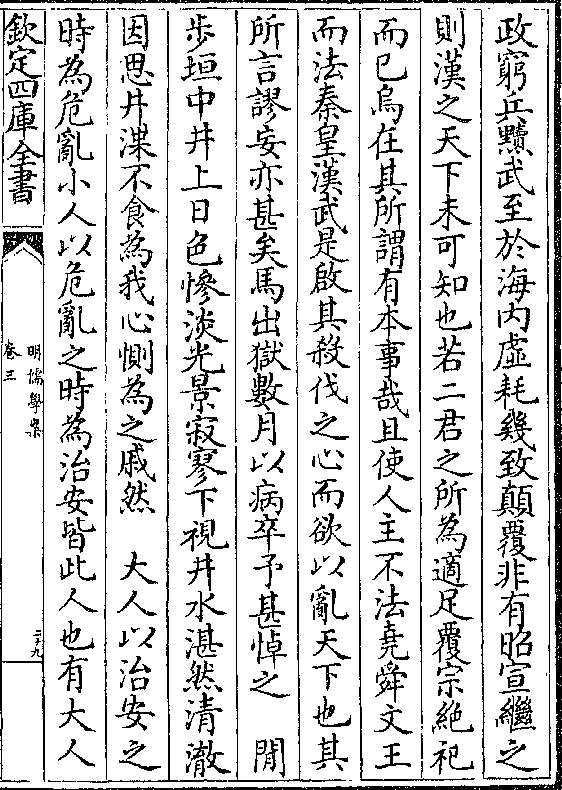 政窮兵黷武至於海内虚耗幾致顛覆非有昭宣繼之
則漢之天下未可知也若二君之所為適足覆宗絶祀
而已烏在其所謂有本事哉且使人主不法堯舜文王
而法秦皇漢武是啟其殺伐之心而欲以亂天下也其
所言謬妄亦甚矣馬出獄數月以病卒予甚悼之　閒
步垣中井上日色慘淡光景寂寥下視井水湛然清澈
因思井渫不食為我心惻為之戚然　大人以治安之
時為危亂小人以危亂之時為治安皆此人也有大人
欽定四庫全書
明儒學案
卷三
二十九